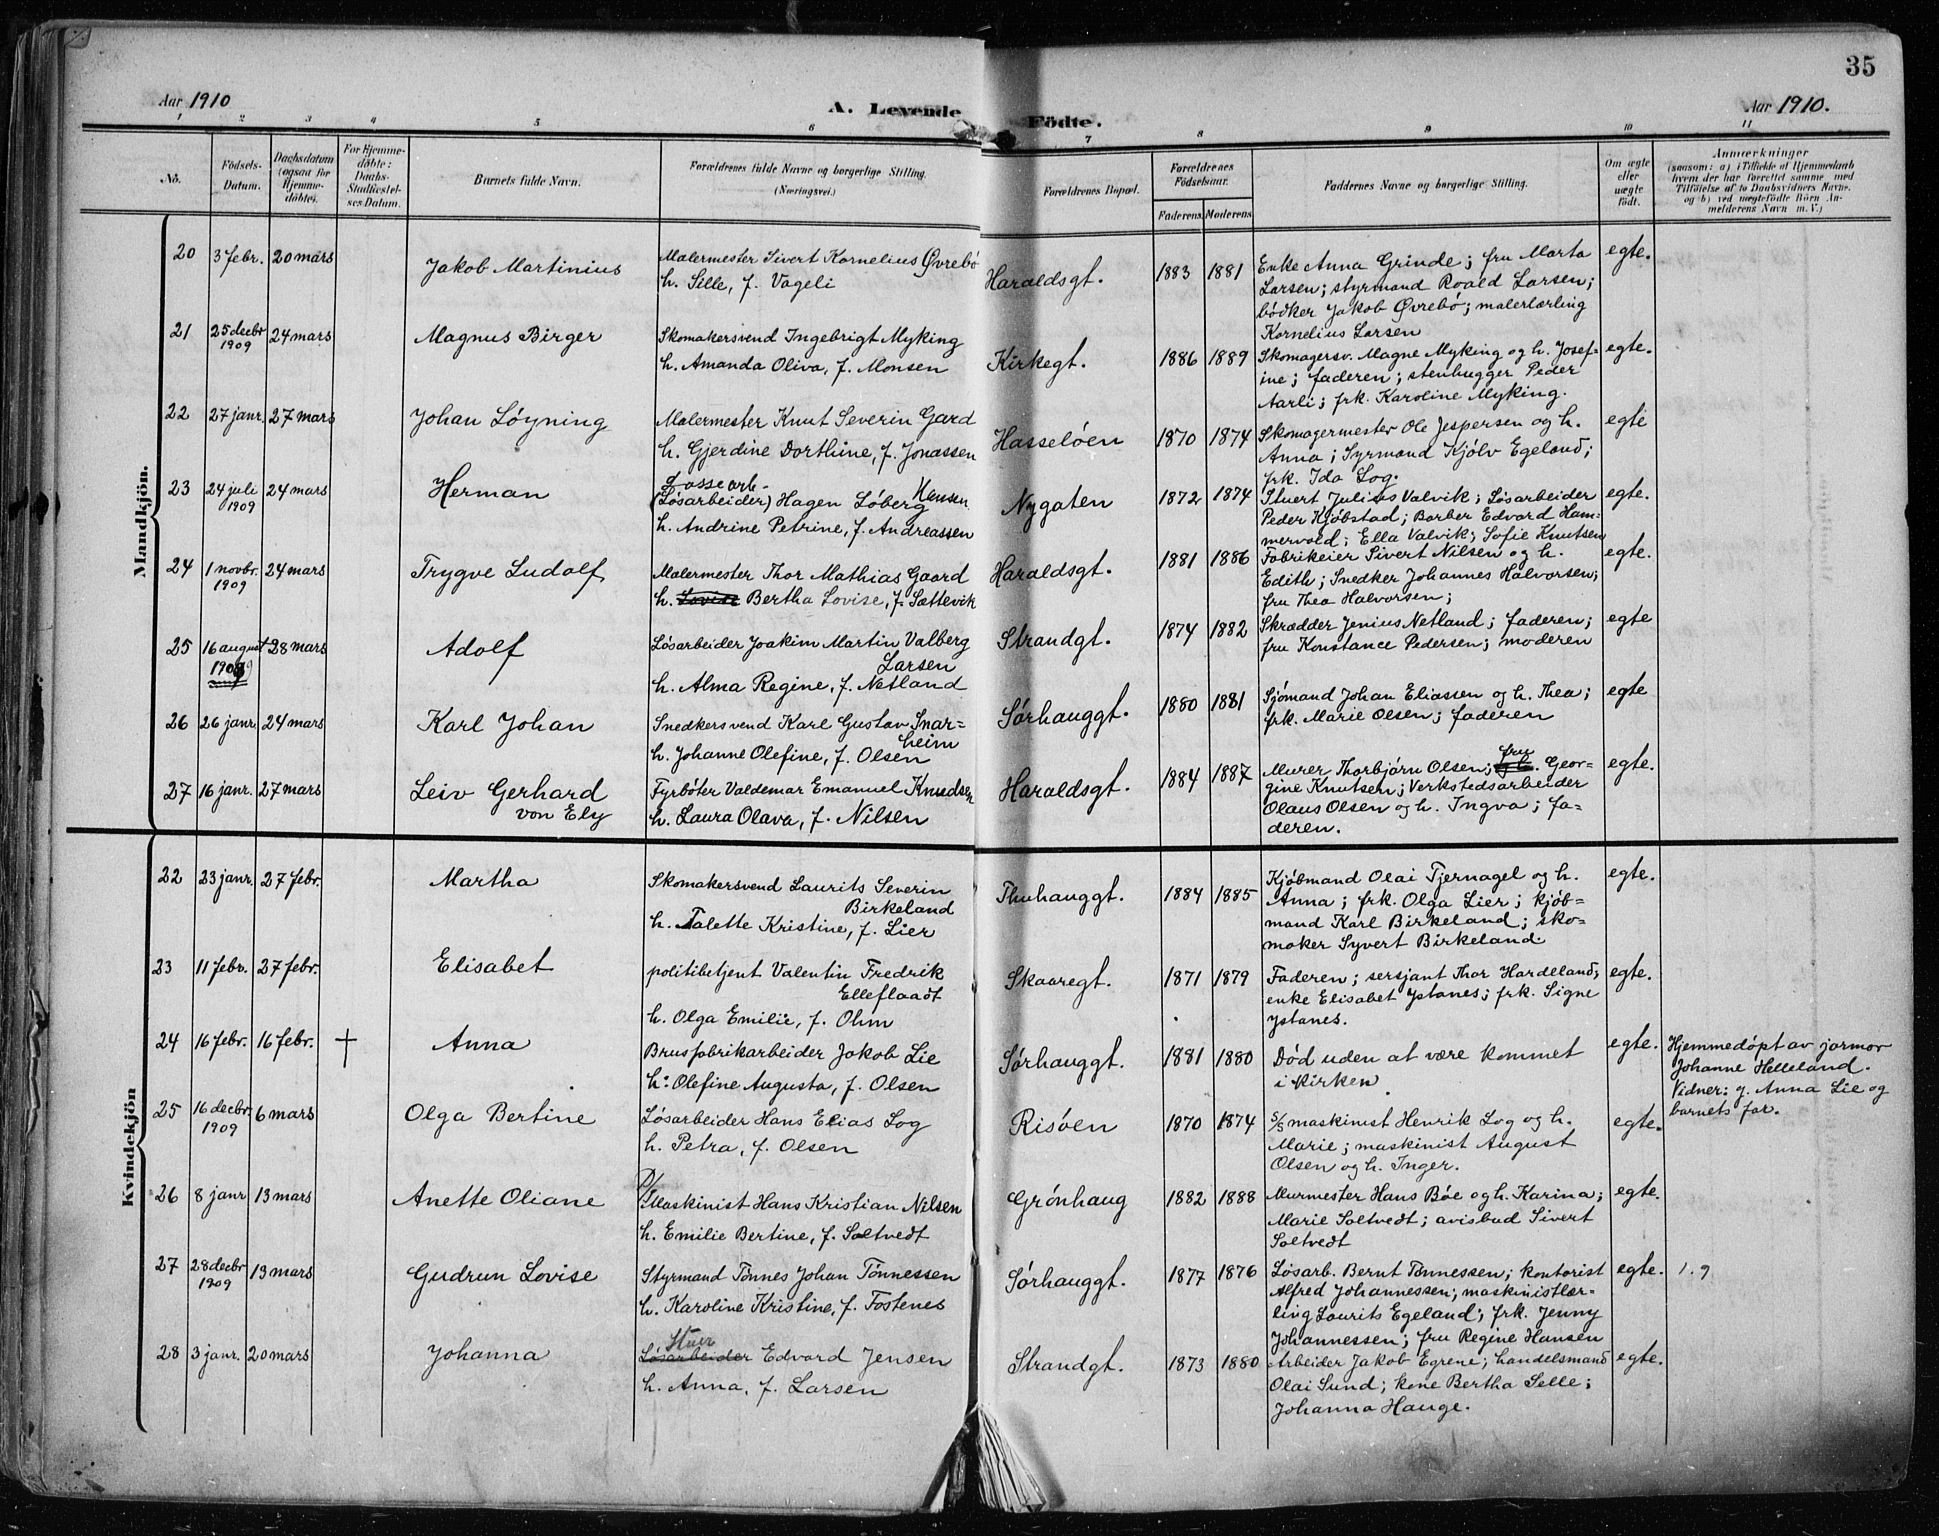 35
Aar 1910
A. Levende Födte.
Aar 1910.
1 2 3 4 5 6 7 8 9 10 11
No.
Födsels-
Datum.
Daabsdatum
(ogsaa for
Hjemme-
döbte).
For Hjemme-
döbte:
Daabs-
Stadfæstel-
ses-Datum.
Barnets fulde Navn.
Forældrenes fulde Navne og borgerlige Stilling.
(Næringsvei.)
Forældrenes Bopæl.
Forældrenes
Födselsaar.
Faderens Moderens
Faddernes Navne og borgerlige Stilling.
Om ægte
eller
uægte
födt.
Anmærkninger
(saasom: a) i Tilfælde af Hjemmedaab
hvem der har forrettet samme med
Tilföielse af to Daabsvidners Navne,
og b) ved uægtefödte Börn An-
melderens Navn m. V.)
Mandkjön.
20 3 febr. 20 mars Jakob Martinius
Malermester Sivert Kornelius Øvrebö
h. Sille, f. Vageli
Haraldsgt. 1883 1881
Enke Anna Grinde; fru Marta
Larsen; styrmand Roald Larsen;
bödker Jakob Øvrebö; malerlærling
Kornelius Larsen
egte.
21 25 decbr 1909 24 mars Magnus Birger
Skomakersvend Ingebrigt Myking
h. Amanda Oliva, f. Monsen
Kirkegt. 1886 1889
Skomagersv. Magne Myking og h. Josef-
ine; faderen; stenhugger Peder
Aarli; frk. Karoline Myking.
egte.
22 27 janr. 27 mars Johan Löyning
Malermester Knut Severin Gard
h. Gjerdine Dorthine, f. Jonassen
Hasselöen 1870 1874
Skomagermester Ole Jespersen og h.
Anna; Syrmand Kjölv Egeland;
frk. Ida Log.
egte
23 24 juli 1909 24 mars Herman
Lossearb.
(Lösarbeider) Hagen Löberg Hansen
h. Andrine Petrine, f. Andreassen
Nygaten 1872 1874
Stuert Julius Valvik; Lösarbeider
Peder Kjöbstad; Barber Edvard Ham-
mervold; Ella Valvik; Sofie Knutsen
egte.
24 1 novbr. 1909 24 mars Trygve Ludolf
Malermester Thor Mathias Gaard
h. Lovise Bertha Lovise, f. Sættevik
Haraldsgt. 1881 1886
Fabrikeier Sivert Nilsen og h.
Edith; Snedker Johannes Halvorsen;
fru Thea Halvorsen;
egte.
25 16 august 1909 28 mars Adolf
Lösarbeider Joakim Martin Valberg
Larsen
h. Alma Regine, f. Netland
Strandgt. 1874 1882
Skrædder Jenius Netland; faderen;
fru Konstance Pedersen; moderen
egte
26 26 janr. 24 mars Karl Johan
Snedkersvend Karl Gustav Snar=
heim
h. Johanne Olefine, f. Olsen
Sörhauggt. 1880 1881
Sjömand Johan Eliassen og h. Thea;
frk. Marie Olsen; faderen
egte
27 16 janr. 27 mars Leiv Gerhard
von Ely
Fyrböter Valdemar Emanuel Knudsen
h. Laura Olava, f. Nilsen
Haraldsgt. 1884 1887
Murer Thorbjörn Olsen; fru Geor-
gine Knutsen; Verkstedsarbeider
Olaus Olsen og h. Ingva; fa-
deren.
egte.
Kvindekjön
22 23 janr. 27 febr. Martha
Skomakersvend Laurits Severin
Birkeland
h. Talette Kristine, f. Lier
Thuhauggt. 1884 1885
Kjöbmand Olai Tjernagel og h.
Anna; frk. Olga Lier; kjöb=
mand Karl Birkeland; sko=
maker Syvert Birkeland
egte.
23 11 febr. 27 febr. Elisabet
politibetjent Valentin Fredrik
Elleflaadt
h. Olga Emilie, f. Ohm
Skaaregt. 1871 1879
Faderen; sersjant Thor Hardeland;
enke Elisabet Ystanes; frk. Signe
Ystanes.
egte.
24 16 febr. 16 febr. † Anna
Brusfabrikarbeider Jakob Lie
h: Olefine Augusta, f. Olsen
Sörhauggt. 1881 1880
Död uden at være kommet
i kirken
egte.
Hjemmedöpt av jormor
Johanne Helleland.
Vidner: g. Anna Lie og
barnets far.
25 16 decbr. 1909 6 mars Olga Bertine
Lösarbeider Hans Elias Log
h. Petra, f. Olsen
Risöen 1870 1874
S/S maskinist Henrik Log og h.
Marie; maskinist August
Olsen og h. Inger.
egte.
26 8 janr 13 mars Anette Oliane
Maskinist Hans Kristian Nilsen
h. Emilie Bertine, f. Saltvedt
Grönhaug 1882 1888
Murmester Hans Böe og h. Karina;
Marie Saltvedt; avisbud Sivert
Saltvedt
egte.
27 28 decbr 1909 13 mars Gudrun Lovise
Styrmand Tönnes Johan Tönnessen
h. Karoline Kristine, f. Fostenes
Sörhauggt. 1877 1876
Lösarb. Bernt Tönnessen; kontorist
Alfred Johannessen; maskinistlær-
ling Laurits Egeland; frk. Jenny
Johannessen; fru Regine Hansen
egte. 1.9
28 3 janr. 20 mars Johanna
Stuer
Lösarbeider Edvard Jensen
h. Anna, f. Larsen
Strandgt. 1873 1880
Arbeider Jakob Egrene; handelsmand
Olai Sund; kone Bertha Selle;
Johanna Hauge.
egte.